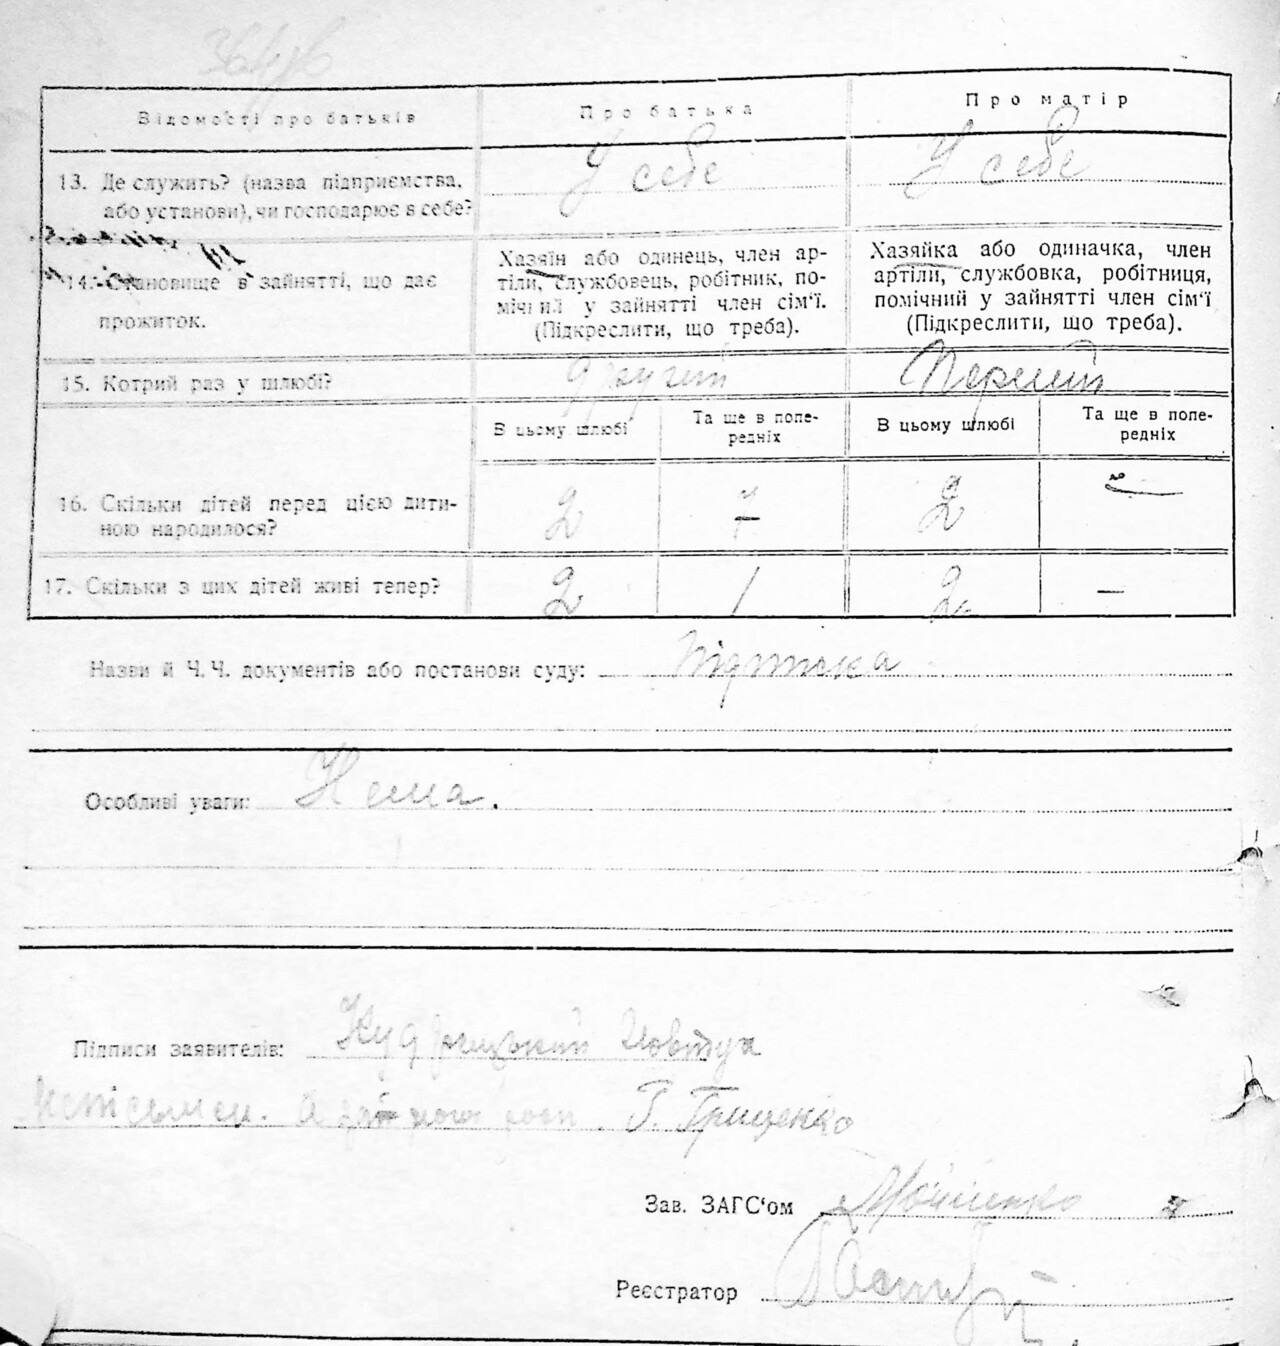 Відомості про батьків
Про батька
Про матір
13. Де служить? (назва підприємства,
або установи), чи господарює в себе?
У себе
У себе
14. Становище в зайнятті, що дає
прожиток.
Хазяїн або одинець, член ар-
тіли, службовець, робітник, по-
мічний у зайнятті член сім'ї.
(Підкреслити, що треба).
Хазяйка або одиначка, член
артіли, службовка, робітниця,
помічний у зайнятті член сім'ї
(Підкреслити, що треба).
15. Котрий раз у шлюбі?
другий
Перший
В цьому шлюбі
Та ще в попе-
редніх
В цьому шлюбі
Та ще в попе-
редніх
16. Скільки дітей перед цією дити-
ною народилося?
2
7
2
-
17. Скільки з цих дітей живі тепер?
2
1
2
—
Назви й Ч. Ч. документів або постанови суду:
Особливі уваги: Нема.
Підписи заявителів:
Г. Гриценко
Зав. ЗАГС'ом
Реєстратор